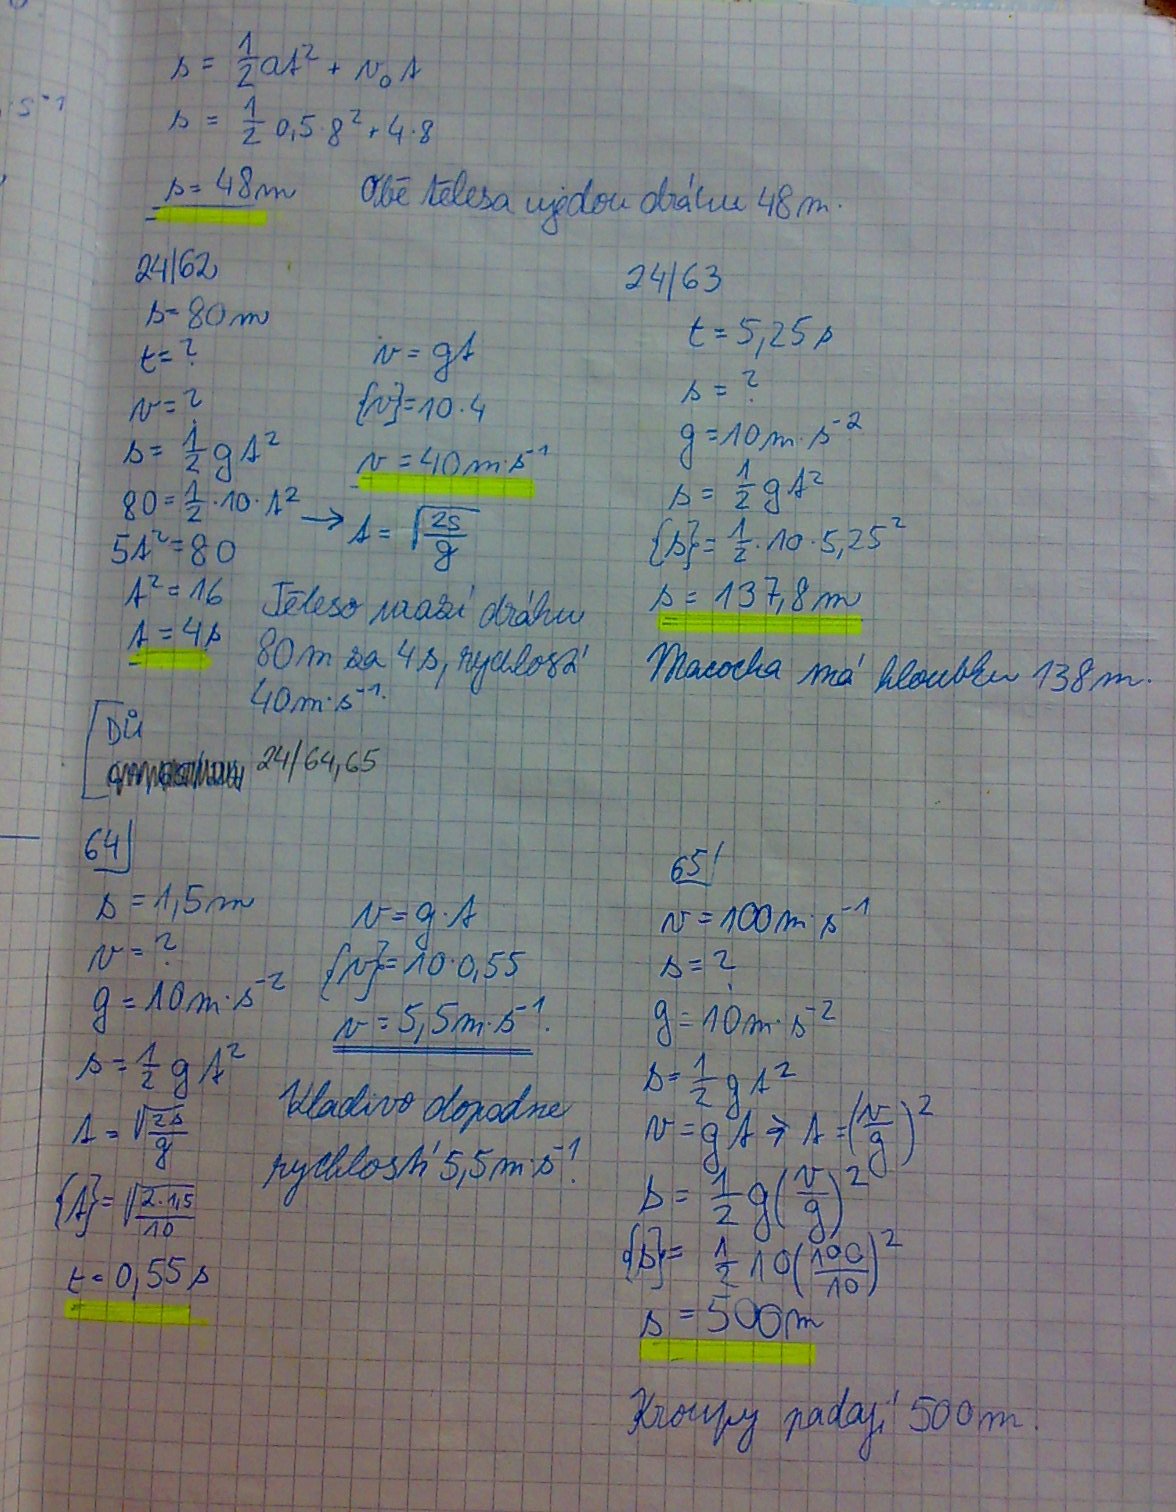 · s⁻¹
s = 1/2 at² + v₀t
s = 1/2 0,5·8² + 4·8
s = 48m
Obě tělesa ujedou dráhu 48m.
24/62
s = 80m
t = ?
v = ?
s = 1/2 gt²
80 = 1/2 · 10 · t²
5t² = 80
t² = 16
t = 4s
v = gt
{v} = 10·4
v = 40m·s⁻¹
→ t = √(2s/g)
Těleso urazí dráhu
80m za 4s, rychlostí
40m·s⁻¹.
24/63
t = 5,25s
s = ?
g = 10m·s⁻²
s = 1/2 gt²
{s} = 1/2 · 10 · 5,25²
s = 137,8m
Macocha má hloubku 138m.
DÚ
24/64,65
64
s = 1,5m
v = ?
g = 10m·s⁻²
s = 1/2 gt²
t = √(2s/g)
{t} = √(2·1,5/10)
t = 0,55s
v = g·t
{v} = 10·0,55
v = 5,5m·s⁻¹.
Kladivo dopadne
rychlostí 5,5m·s⁻¹.
65
v = 100m·s⁻¹
s = ?
g = 10m·s⁻²
s = 1/2 gt²
v = gt → t = (v/g)²
s = 1/2 g(v/g)²
{s} = 1/2 10(100/10)²
s = 500m
Kroupy padají 500m.